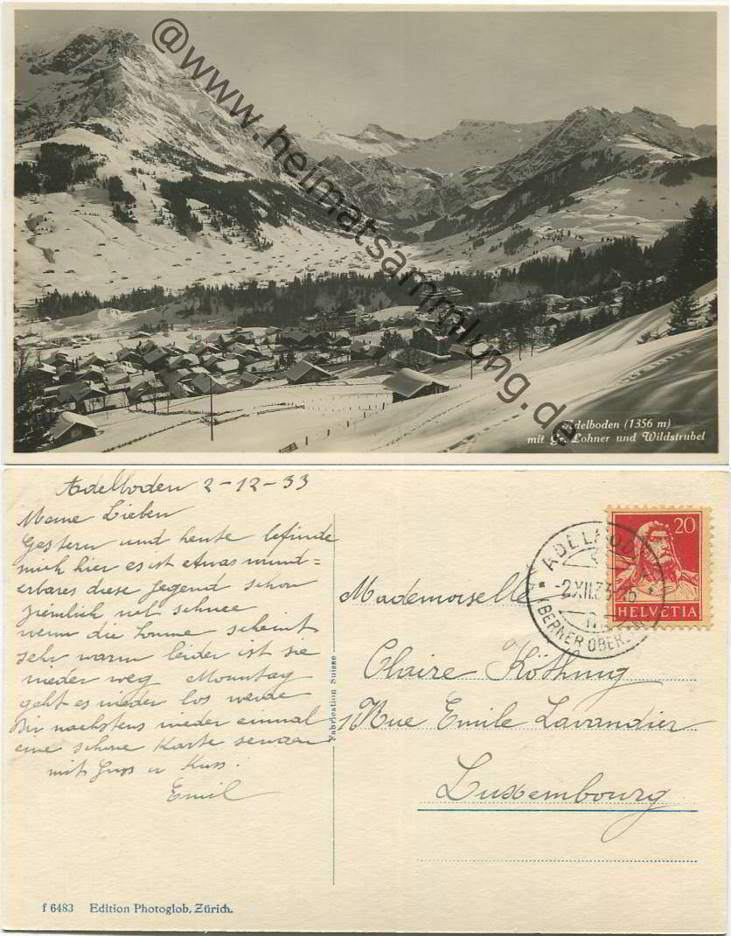 @www.heimatsammlung.de
Adelboden (1356 m)
mit Gr. Lohner und Wildstrubel
Adelboden 2-12-33
Meine Lieben
Gestern und heute befinde
mich hier es ist etwas wund=
erbares diese Gegend schon
ziemlich viel schnee
wenn die Sonne scheint
sehr warm leider ist sie
wieder weg Mountag
geht es wieder los werde
Dir nächstens wieder einmal
eine schöne Karte senden
mit Gruss u Kuss.
Emil
20
HELVETIA
ADELBODEN
-2.XII.33
BERNER OBERL.
Mademoiselle
Claire Köthung
1 Rue Emile Lavandier
Luxembourg
Fabrication Suisse
f 6483 Edition Photoglob, Zürich.